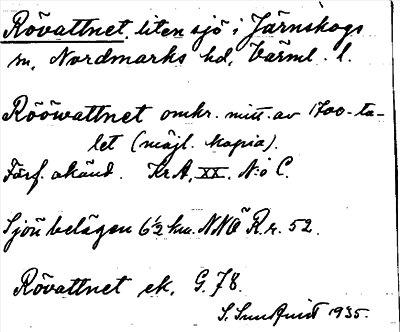 Rövattnet, liten sjö i Järnskogs
sn, Nordmarks hd, Värml. l.
Rööwattnet omkr. mitt. av 1700-ta-
let (möjl. kopia).
Förf. okänd. Kr. A. XX. N:o C.
Sjön belägen 6½ km. NNÖ R.r. 52.
Rövattnet ek. G. 78.
S. Sundquist 1935.